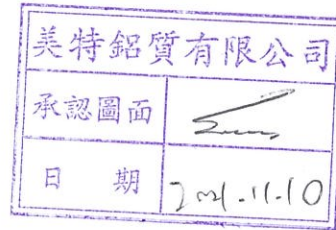 美特鋁質有限公司
承認圖面
日期 2021.11.10